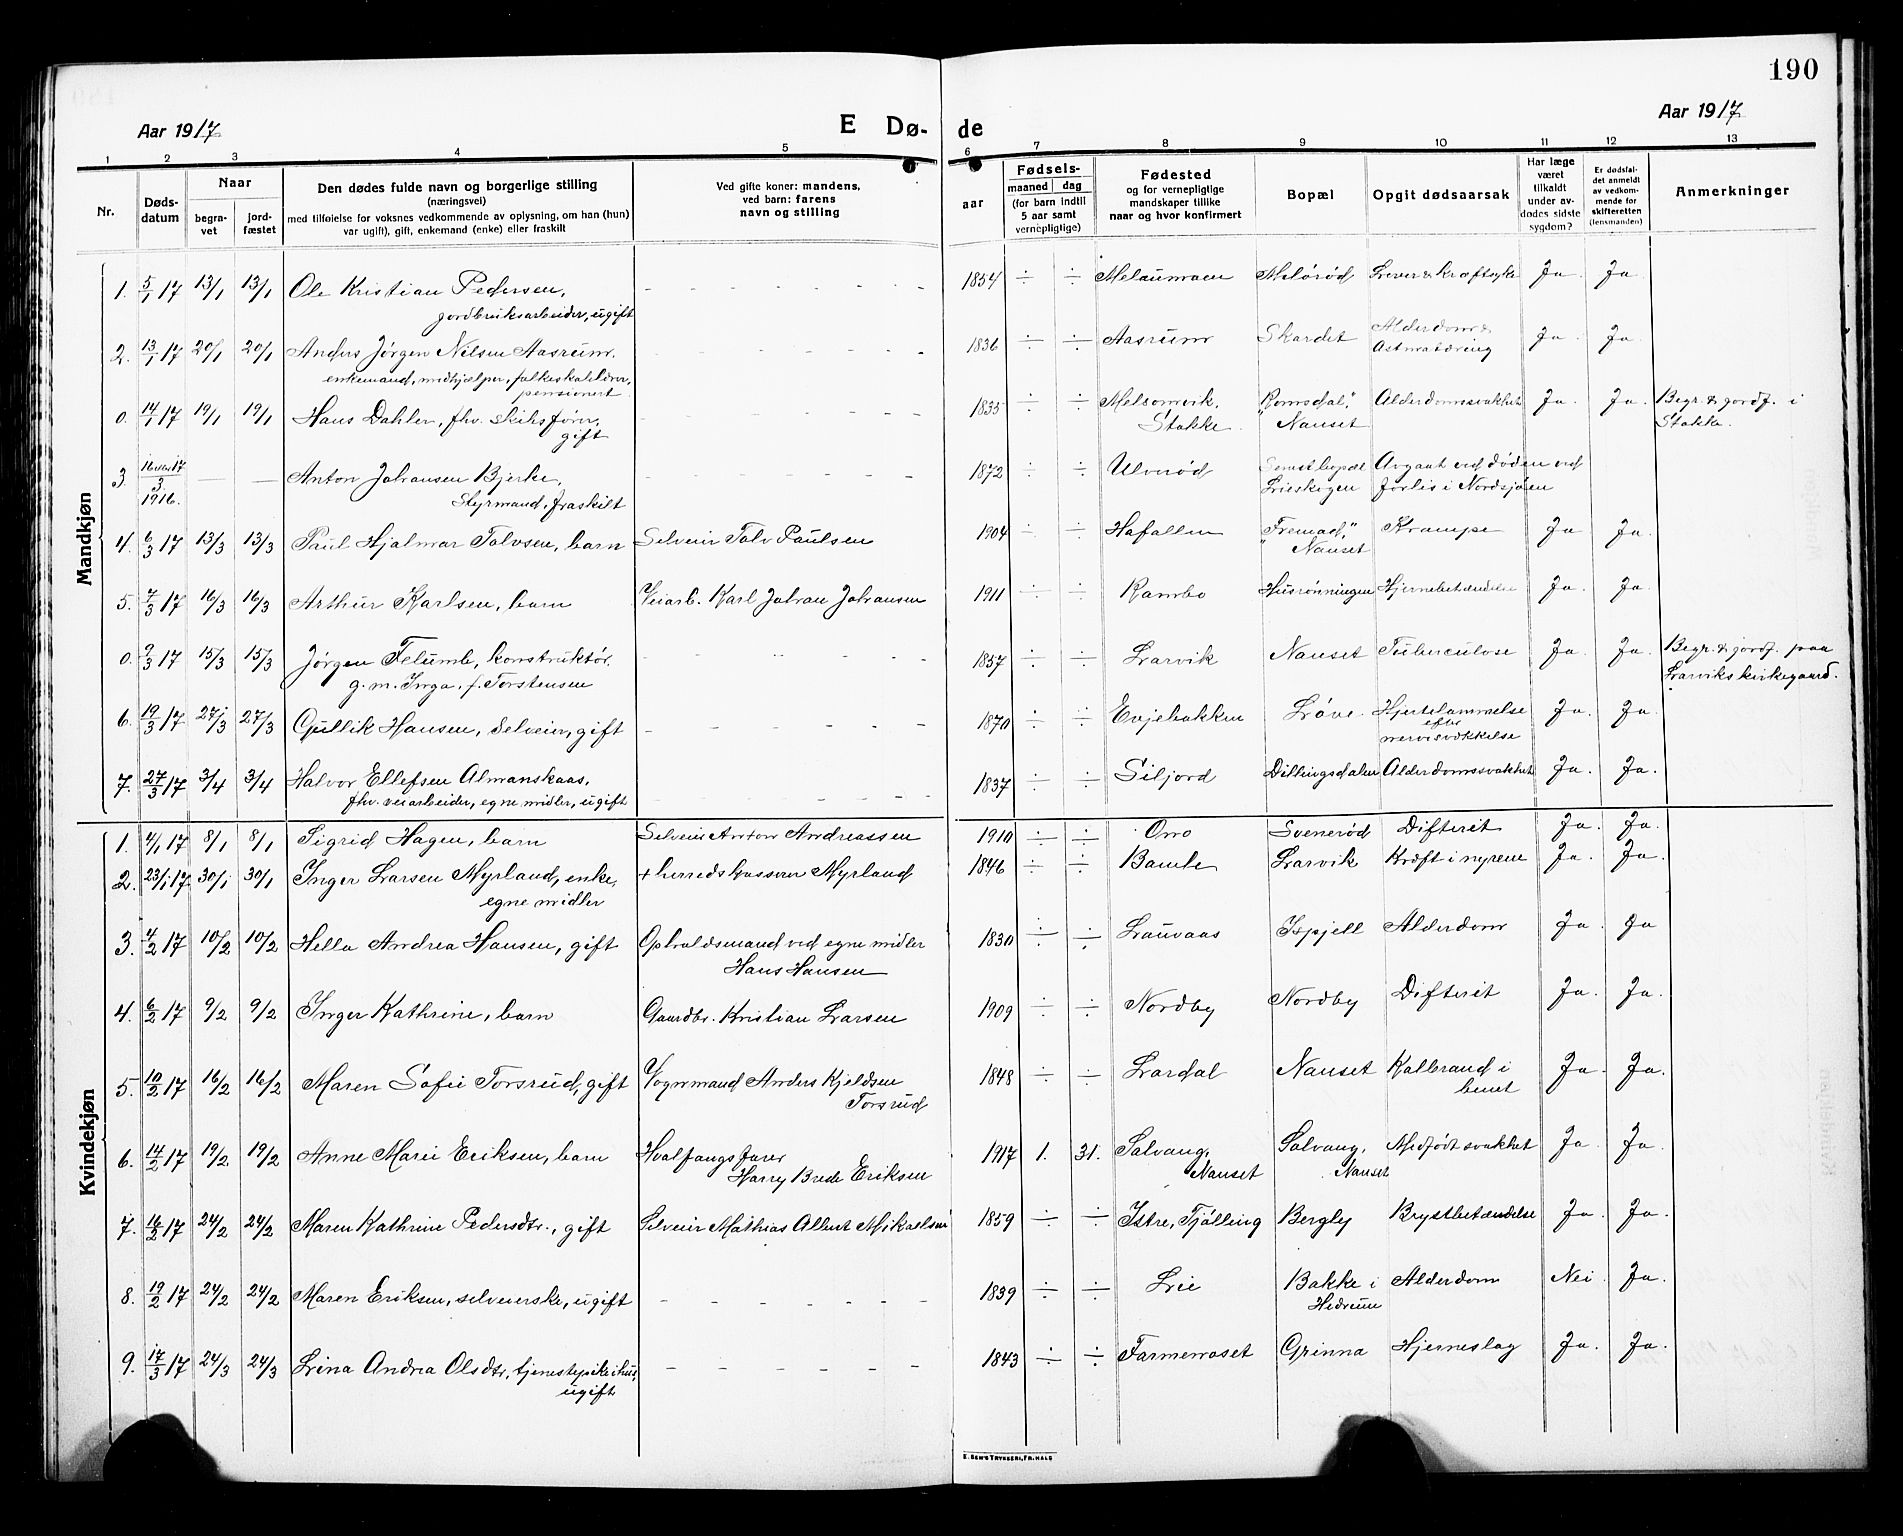 190
Aar 1917
E Dø-
de
Aar 1917
1 2 3 4 5 6 7 8 9 10 11 12 13
Nr.
Døds-
datum
Naar
begra-
vet
jord-
fæstet
Den dødes fulde navn og borgerlige stilling
(næringsvei)
med tilføielse for voksnes vedkommende av oplysning, om han (hun)
var ugift), gift, enkemand (enke) eller fraskilt
Ved gifte koner: mandens,
ved barn: farens
navn og stilling
Fødsels-
aar
maaned dag
(for barn indtil
5 aar samt
vernepligtige)
Fødested
og for vernepligtige
mandskaper tillike
naar og hvor konfirmert
Bopæl
Opgit dødsaarsak
Har læge
været
tilkaldt
under av-
dødes sidste
sygdom?
Er dødsfal-
det anmeldt
av vedkom-
mende for
skifteretten
(lensmanden)
Anmerkninger
Mandkjøn
1. 5/1 17 13/1 13/1 Ole Kristian Pedersen, - - - 1854 ÷ ÷ Melaumoen Melørød Lever & kræftsyke Ja. Ja.
jordbruksarbeider, ugift
2. 13/1 17 20/1 20/1 Anders Jørgen Nilsen Aasrum. - - - 1836 ÷ ÷ Aasrum Skardet Alderdom & Ja. Ja.
Astmatæring
enkemand, pensionert
0. 14/1 17 19/1 19/1 Hans Dahler, fhv. Skibsfører, 1835 ÷ ÷ Melsomvik, "Romsdal," Alderdomssvakhet Ja. Ja. Begr. & jordf. i
gift Stokke. Nanset Stokke.
3. 16 17 / 3 1916. — — Anton Johansen Bjerke, - - - 1872 ÷ ÷ Ulverød Senest bopæl Avgaat ved døden ved
Styrmand, fraskilt Lieskogen forlis i Nordsjøen
4. 6/3 17 13/3 13/3 Paul Hjalmar Talvsen, barn Selveier Talv Paulsen 1904 ÷ ÷ Hafallen "Fremad," Krampe Ja Ja.
Nanset
5. 7/3 17 16/3 16/3 Arthur Karlsen, barn Veiarb. Karl Johan Johansen 1911 ÷ ÷ Rambo Husrønningen Hjernebetændelse Ja. Ja.
0. 9/3 17 15/3 15/3 Jørgen Felumb, konstruktør. - - - 1857 ÷ ÷ Larvik Nanset Tuberculose Ja. Ja. Begr. & jordf. paa
g. m. Inga, f. Torstensen Larviks kirkegaard.
6. 19/3 17 27/3 27/3 Gullik Hansen, Selveier, gift - - - 1870 ÷ ÷ Evjebakken Løve. Hjertelammelse Ja. Ja.
efter
nervesvækkelse
7. 27/3 17 3/4 3/4 Halvor Ellefsen Almanskaas, - - - 1837 ÷ ÷ Siljord Dillingsdalen Alderdomssvakhet Ja. Ja.
fhv. veiarbeider, egne midler, ugift
Kvindekjøn
1. 4/1 17 8/1 8/1 Sigrid Hagen, barn Selveier Anton Andreassen 1910 ÷ ÷ Omo Svenerød Difterit Ja. Ja.
2. 23/1 17 30/1 30/1 Inger Larsen Myrland, enke, + herredskasserer Myrland 1846 ÷ ÷ Bamle Larvik Kræft i nyrene Ja. Ja.
egne midler
3. 4/2 17 10/2 10/2 Hella Andrea Hansen, gift Opholdsmand ved egne midler 1830 ÷ ÷ Lauvaas Ispjell Alderdom Ja. Ja
Hans Hansen
4. 6/2 17 9/2 9/2 Inger Kathrine, barn Gaardbr. Kristian Larsen 1909 ÷ ÷ Nordby Nordby Difterit Ja. Ja.
5. 10/2 17 16/2 16/2 Maren Sofie Torsrud, gift Vognmand Anders Kjeldsen 1848 ÷ ÷ Lardal Nanset Kolbrand i Ja. Ja.
Torsrud benet
6. 14/2 17 19/2 19/2 Anne Marie Eriksen, barn Hvalfangsfarer 1917 1. 31. Solvang, Solvang, Medfødt svakhet Ja. Ja.
Harry Brede Eriksen Nanset Nanset
7. 16/2 17 24/2 24/2 Maren Kathrine Pedersdtr., gift Selveier Mathias Albert Mikaelsen 1859 ÷ ÷ Istre, Tjølling Bergly Brystbetændelse Ja. Ja.
8. 19/2 17 24/2 24/2 Maren Eriksen, selveierske, ugift - - - 1839 ÷ ÷ Lie Bakke i Alderdom Nei. Ja.
Hedrum
9. 17/3 17 24/3 24/3 Lina Andrea Olsdtr, tjenestepike i hus, - - - 1843 ÷ ÷ Farmenroset Grinna Hjerneslag Ja. Ja.
ugift
E. SEM'S TRYKKERI, FR.HALD